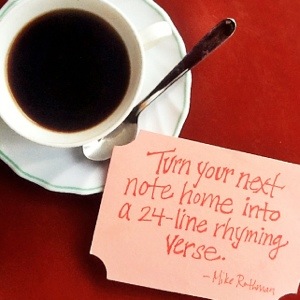 Turn your next
note home into
a 24-line rhyming
verse.
— Mike Rothman